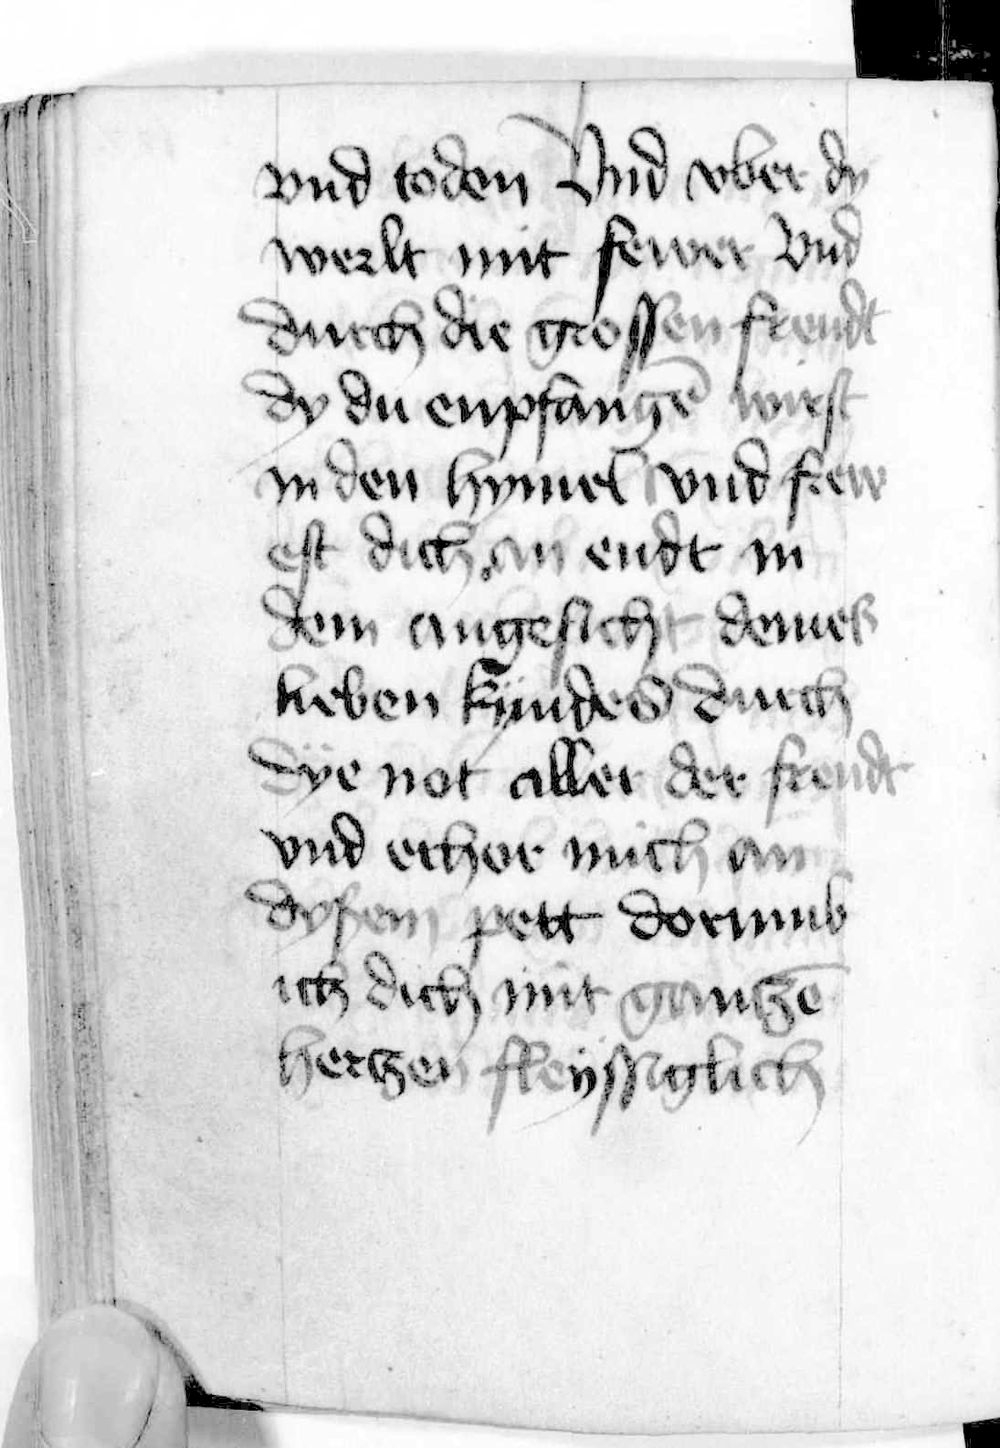 vnd toden Vnd vber dy
werlt mit fewer Vnd
durch die grossen freudt
dy du enpfangē wirst
in den hymel vnd frew
est dich an endt in
dem angesicht deines
lieben kyndes durch
dÿe not aller der freudt
vnd erhor mich an
dysem pett dorumb
ich dich mit gantzē
hertzen fleÿssiglich